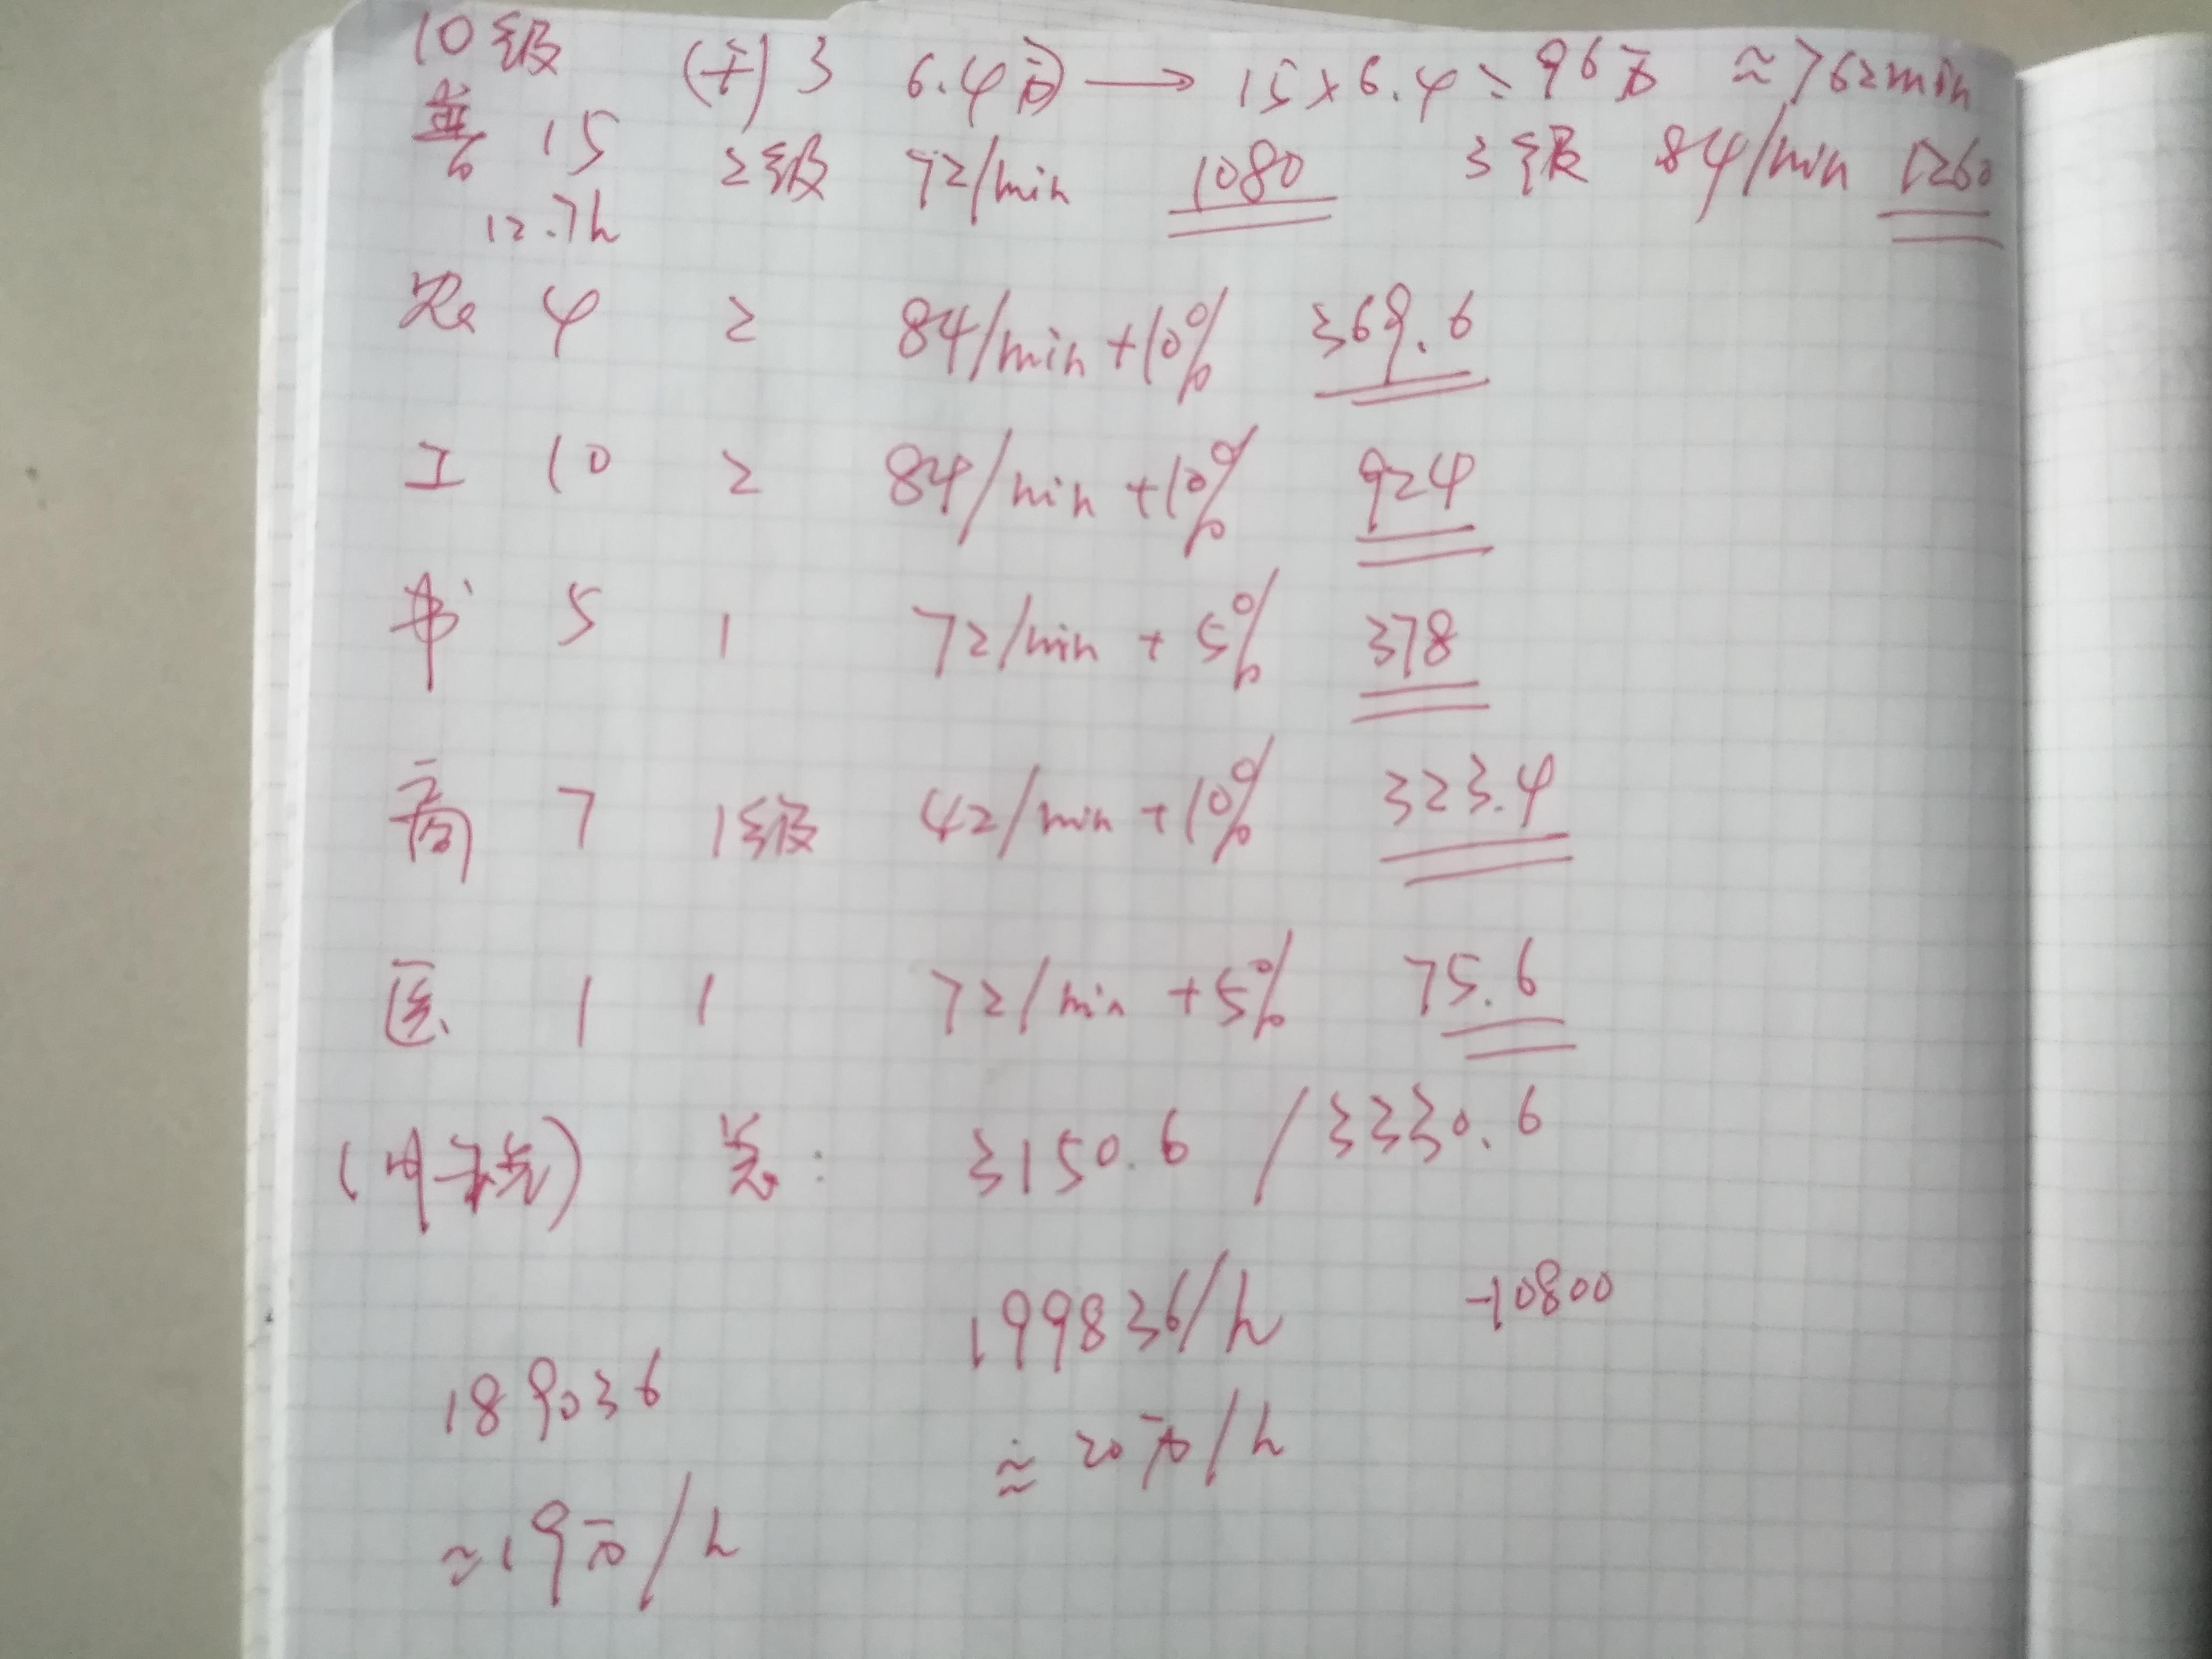 10级 (升)3 6.4万 → 15×6.4=96万 ≈762min
普 15 2级 72/min 1080 3级 84/min 1260
12.7h
农 4 2 84/min+10% 369.6
工 10 2 84/min+10% 924
书 5 1 72/min+5% 378
商 7 1级 42/min+10% 323.4
医 1 1 72/min+5% 75.6
总: 3150.6/3330.6
199836/h -10800
189036
≈20万/h
≈19万/h